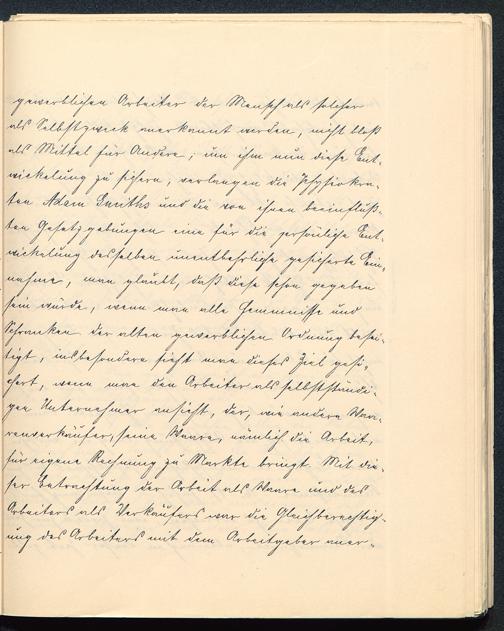 gewerblichen Arbeiter der Mensch als solcher
als Selbstzweck anerkannt werden, nicht bloß
als Mittel für Andere; um ihm nun diese Ent-
wickelung zu sichern, verlangen die Physiokra-
ten Adam Smiths und die von ihnen beeinfluß-
ten Gesetzgebungen eine für die persönliche Ent-
wickelung desselben unentbehrliche gesicherte Ein-
nahme, man glaubt, daß diese schon gegeben
sein würde, wenn man alle Hemmnisse und
Schranken der alten gewerblichen Ordnung besei-
tigt, insbesondere sieht man dieses Ziel gesi-
chert, wenn man den Arbeiter als selbstständi-
gen Unternehmer ansieht, der, wie andere Waa-
renverkäufer, seine Waare, nämlich die Arbeit,
für eigene Rechnung zu Markte bringt. Mit die-
ser Betrachtung der Arbeit als Waare und des
Arbeiters als Verkäufers war die Gleichberechtig-
ung des Arbeiters mit dem Arbeitgeber aner-